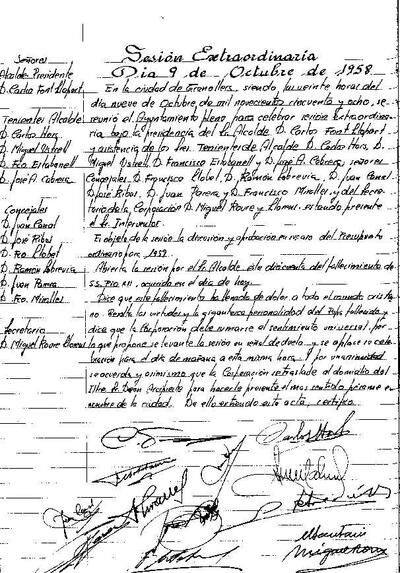 Señores
Alcalde Presidente
D. Carlos Font Llopart
Tenientes Alcalde
D. Carlos Hors
D. Miguel Ustrell
D. Fco Estabanell
D. José A. Cabrera
Concejales
D. Juan Canal
D. José Ribas
D. Fco. Llobet
D. Ramón
D. Juan Parera
D. Fco. Miralles
Secretario
D. Miguel Roure Llomus
Sesión Extraordinaria
Dia 9 de Octubre de 1958
En la ciudad de Granollers, siendo las veinte horas del
dia nueve de Octubre, de mil novecientos cincuenta y ocho, se
reunió el Ayuntamiento pleno para celebrar sesión extraordina-
ria bajo la presidencia del Sr. Alcalde D. Carlos Font Llopart
y asistencia de los Sres. Tenientes de Alcalde D. Carlos Hors, D.
Miguel Ustrell, D. Francisco Estabanell y D. José A. Cabrera, señores
Concejales D. Francisco Llobet, D. Ramón D. Juan Canal
D. José Ribas, D. Juan Parera y D. Francisco Miralles y del Secre-
tario de la Corporación D. Miguel Roure y Llomus, estando presente
el Sr. Interventor.
Es objeto de la sesión la discusión y aprobación en su caso del Presupuesto
ordinario para 1959
Abierta la sesión por el Sr. Alcalde este dió cuenta del fallecimiento de
SS. Pio XII, ocurrido en el día de hoy.
Dice que este fallecimiento ha llenado de dolor a todo el mundo cristia-
no. Resalta las virtudes y la gigantesca personalidad del Papa fallecido y
dice que la Corporación debe sumarse al sentimiento universal, por
lo que propone se levante la sesión en señal de duelo y se aplace su cele-
bración para el día de mañana a esta misma hora. Y por unanimidad
se acuerda y asimismo que la Corporación se traslade al domicilio del
Iltre. Sr. Dean Arcipreste para hacerle presente el mas sentido pésame en
nombre de la ciudad. De ella extiendo este acta, certifico.
Miguel Roure